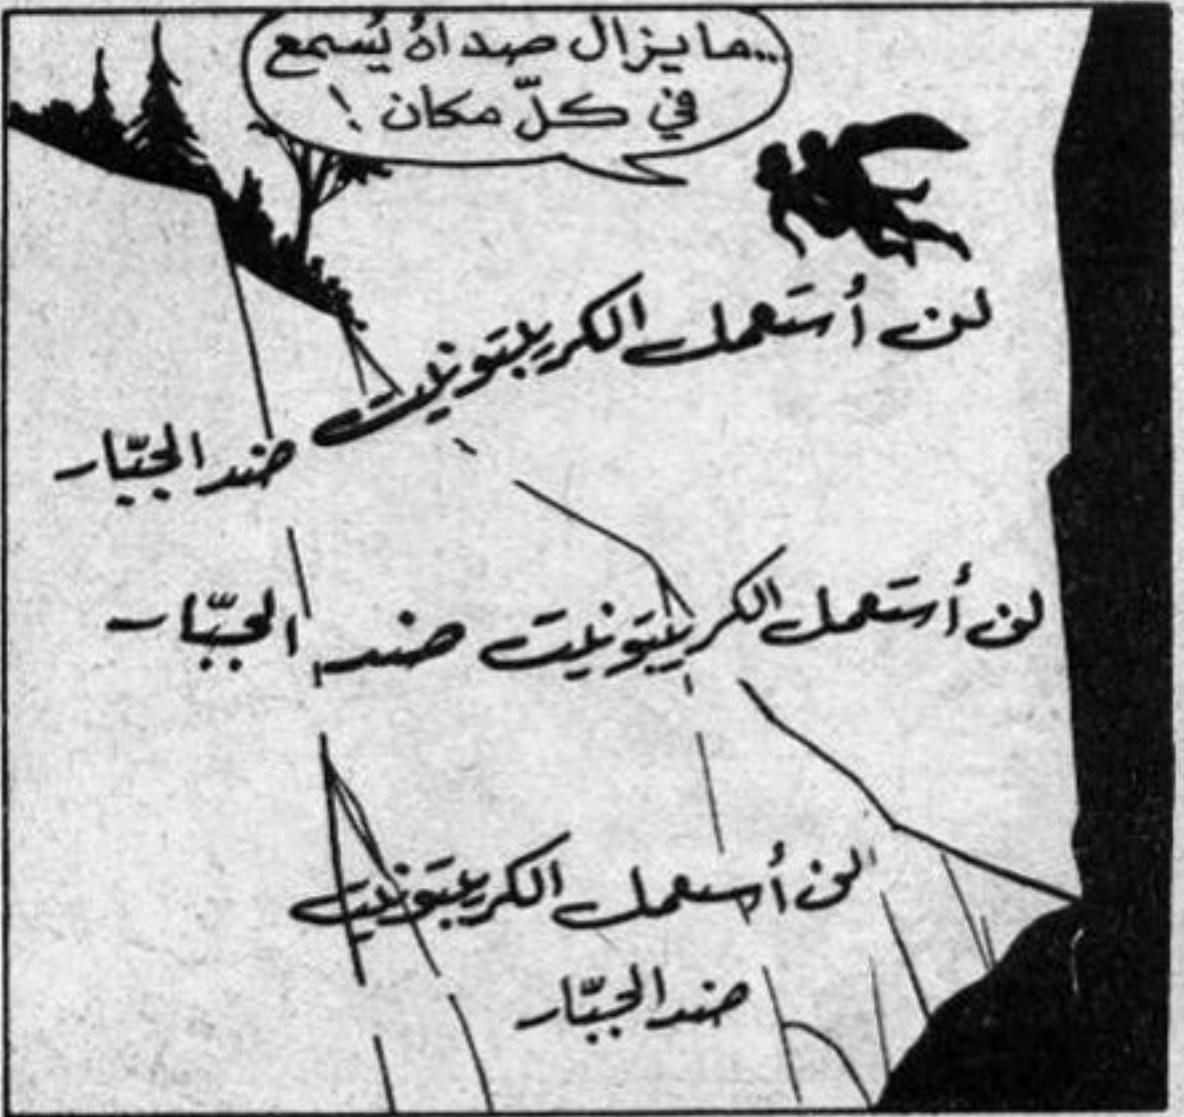 ...ما يزال صداهُ يُسمع
في كلّ مكان !
لن أُستَعمل الكريبتونيت
ضد الجبّار
لن أستَعمل الكريبتونيت ضد الجبّار
لن أُستعمل الكريبتونيت
ضد الجبّار